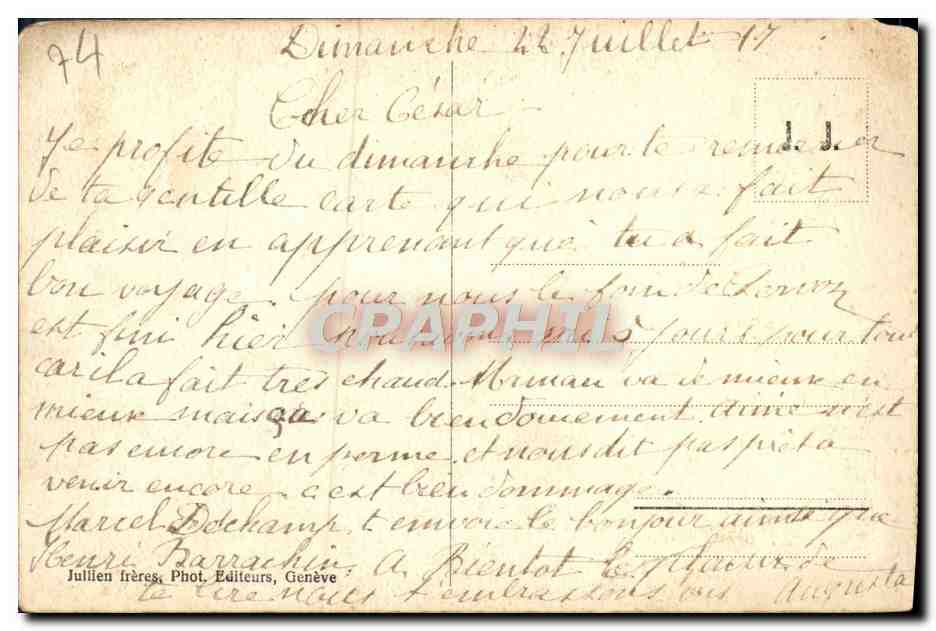 74
Dimanche 22 Juillet 17
Cher César
J. J.
Je profite du dimanche pour te remercier
de ta gentille carte qui nous fait
plaisir en apprenant que tu a fait
bon voyage. pour nous le foin de
est fini hier nous mis 5 jours pour tout
CPAPHIL
car il a fait tres chaud. Maman va de mieux en
mieux mais ça va bien doucement. Aimé n'est
pas encore en perme. et nous dit pas prêt a
venir encore. c'est bien dommage.
Marcel Dechamp t envoie le bonjour ainsi que
Henri Barrachin. A Bientot le plaisir de
Jullien frères, Phot. Editeurs, Genève
te lire nous t embrassons Augusta